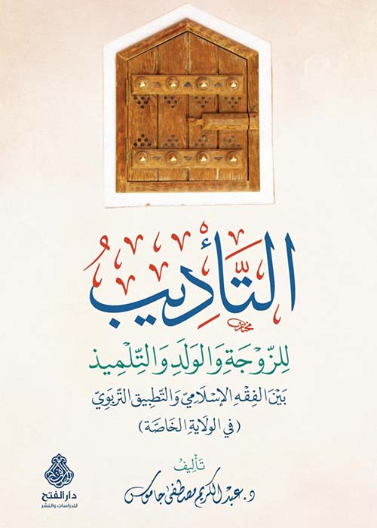 التَّأْدِيبُ
لِلزَّوْجَةِ وَالوَلَدِ وَالتِّلْمِيذِ
بَيْنَ الفِقْهِ الإِسْلَامِيِّ وَالتَّطْبِيقِ التَّرْبَوِيِّ
(فِي الوِلَايَةِ الخَاصَّةِ)
تَأْلِيفُ
د. عبد الكريم مصطفى جاموس
دار الفتح
للدراسات والنشر